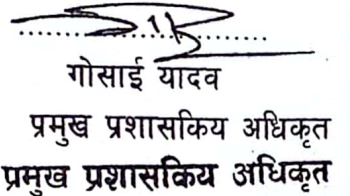 गोसाई यादव
प्रमुख प्रशासकिय अधिकृत
प्रमुख प्रशासकिय अधिकृत